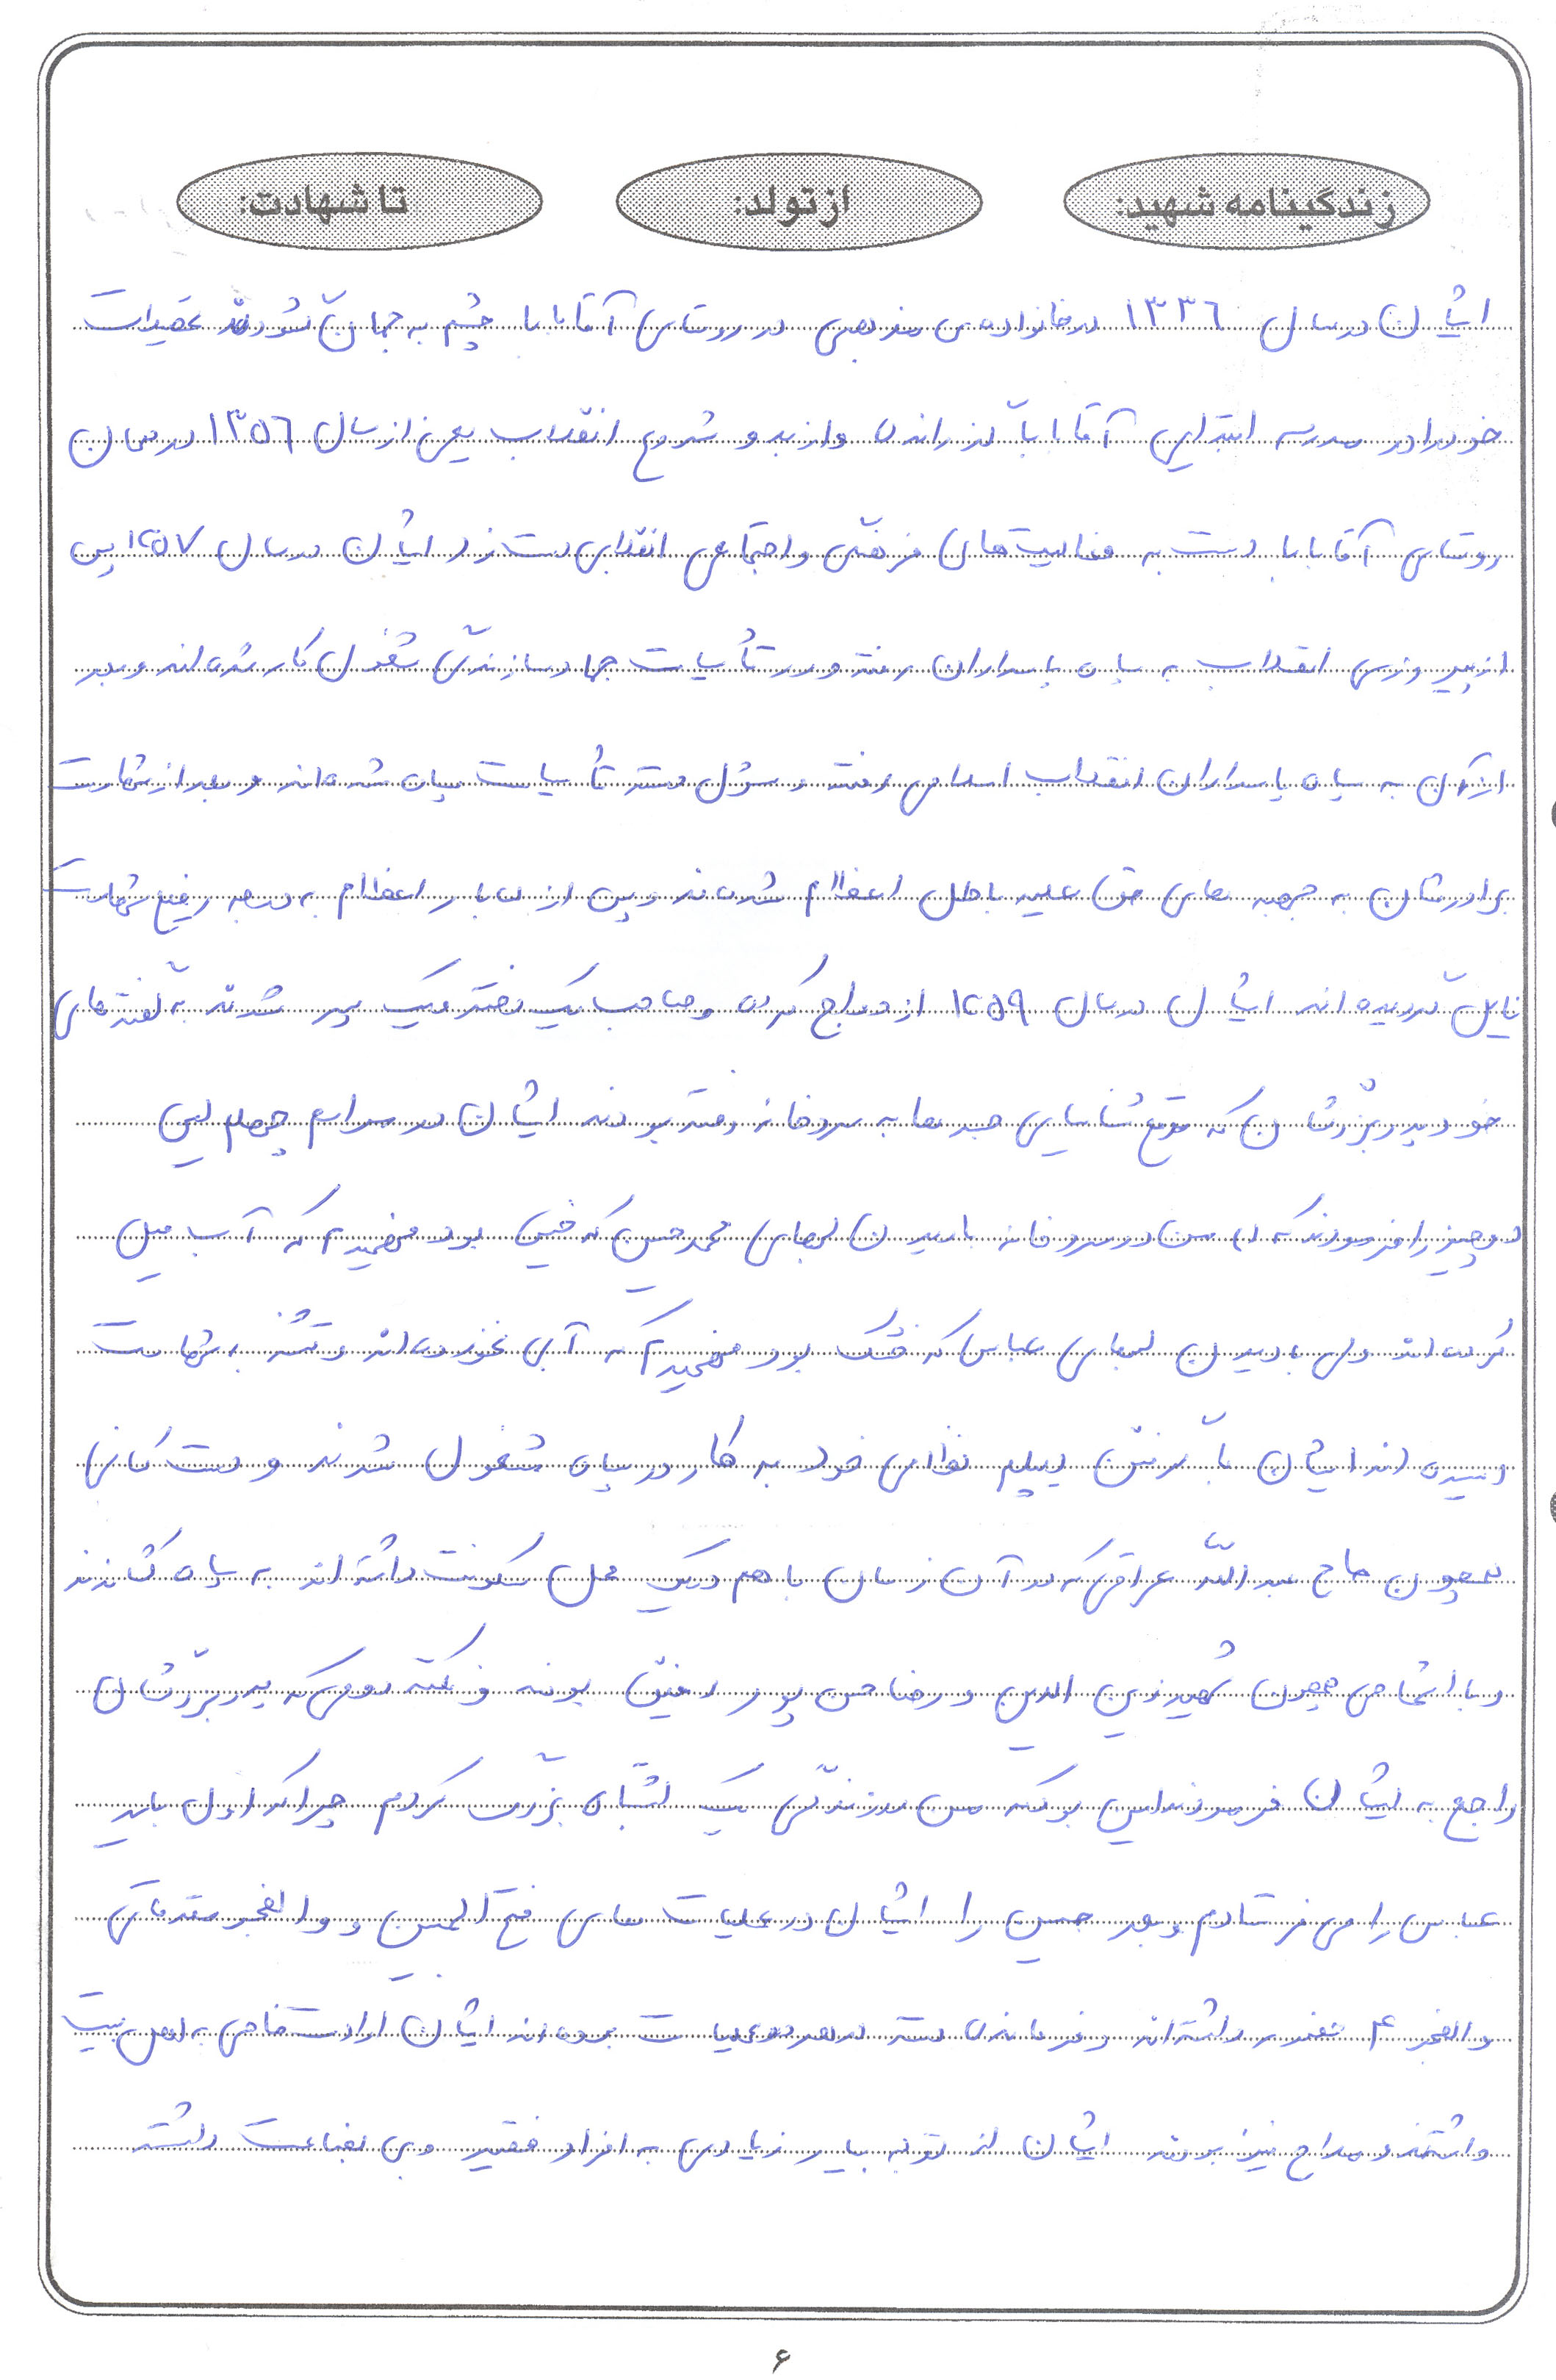 زندگینامه شهید: از تولد: تا شهادت:
ایشان در سال ۱۳۳۶ در خانواده‌ی مذهبی در روستای آقابابا چشم به جهان گشودند تحصیلات
خود را در مدرسه ابتدایی آقابابا گذرانده و از بدو شروع انقلاب یعنی از سال ۱۳۵۶ در همان
روستای آقابابا دست به فعالیت‌های فرهنگی و اجتماعی انقلابی دست زد ایشان در سال ۱۳۵۷ پس
از پیروزی انقلاب به سپاه پاسداران رفته و در تأسیسات جهاد سازندگی مشغول کار شده‌اند و بعد
از آن به سپاه پاسداران انقلاب اسلامی رفته و مسئول دسته تأسیسات سپاه شده‌اند و بعد از شهادت
برادرشان به جبهه های حق علیه باطل اعزام شده‌ند و پس از بار اعزام به درجه رفیع شهادت
نایل گردیده اند ایشان در سال ۱۳۵۹ ازدواج کرده و صاحب یک دختر و یک پسر شدند به گفته‌های
خود پدر بزرگشان که موقع شناسایی جسدها به سردخانه رفته بودند ایشان در مراسم چهلم
دو چیز را فرمودند که من در سردخانه با دیدن لبهای محمد حسین که خیس بود فهمیدم که آب میل
کرده‌اند ولی با دیدن لبهای عباس که خشک بود فهمیدم که آبی نخورده‌اند و تشنه به شهادت
رسیده اند ایشان با گرفتن دیپلم نظام خود به کار در سپاه مشغول شدند و دست کسانی
همچون حاج عبدالله عراقی که در آن زمان با هم در یک محل سکونت داشته اند به سپاه کشاندند
و با اشخاصی همچون شهید زین الدین و رضا حسن پور رفیق بودند و نکته دومی که پدر بزرگشان
راجع به ایشان فرمودند این بود که من در زندگی یک اشتباه بزرگ کردم چرا که اول باید
عباس را می فرستادم و بعد حسین را ایشان در عملیات های فتح المبین و والفجر مقدماتی
والفجر ۴ حضور داشته‌اند و فرمانده دسته در هر دو عملیات بوده‌اند ایشان ارادت خاصی به اهل بیت
داشتند و مداح نیز بودند ایشان توجه بسیار زیادی به افراد فقیر و بی بضاعت داشته
۶